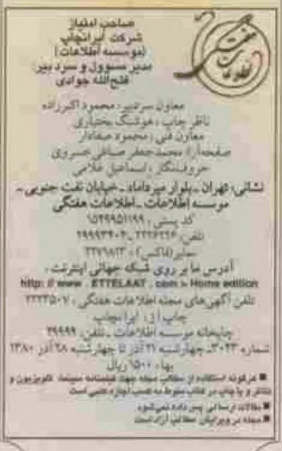 اطلاعات هفتگی
صاحب امتیاز
شرکت ایرانچاپ
(موسسه اطلاعات)
مدیر مسوول و سردبیر:
فتح‌الله جوادی
معاون سردبیر: محمود اکبرزاده
ناظر چاپ: هوشنگ بختیاری
معاون فنی: محمود صفادار
صفحه‌آرا: محمدجعفر صباغی خسروی
حروف‌نگار: اسماعیل غلامی
نشانی: تهران ـ بلوار میرداماد ـ خیابان نفت جنوبی ـ
موسسه اطلاعات ـ اطلاعات هفتگی
کد پستی: ۱۵۴۹۹۵۱۱۹۹
تلفن: ۲۲۲۶۲۲۶ - ۲۹۹۹۳۴۰۴
نمابر (فاکس): ۲۲۷۹۸۲۳
آدرس ما بر روی شبکه جهانی اینترنت:
http: // www . ETTELAAT . com > Home edition
تلفن آگهی‌های مجله اطلاعات هفتگی: ۲۲۲۳۵۰۷
چاپ از: ایرانچاپ
چاپخانه موسسه اطلاعات ـ تلفن: ۲۹۹۹۹
شماره ۳۰۲۳ـ چهارشنبه ۲۱ آذر تا چهارشنبه ۲۸ آذر ۱۳۸۰
بها: ۱۵۰۰ ریال
■ هرگونه استفاده از مطالب مجله جهت فیلمنامه سینما، تلویزیون و
تئاتر و یا چاپ در کتاب منوط به کسب اجازه کتبی است
■ مقالات ارسالی پس داده نمی‌شود
■ مجله در ویرایش مطالب آزاد است